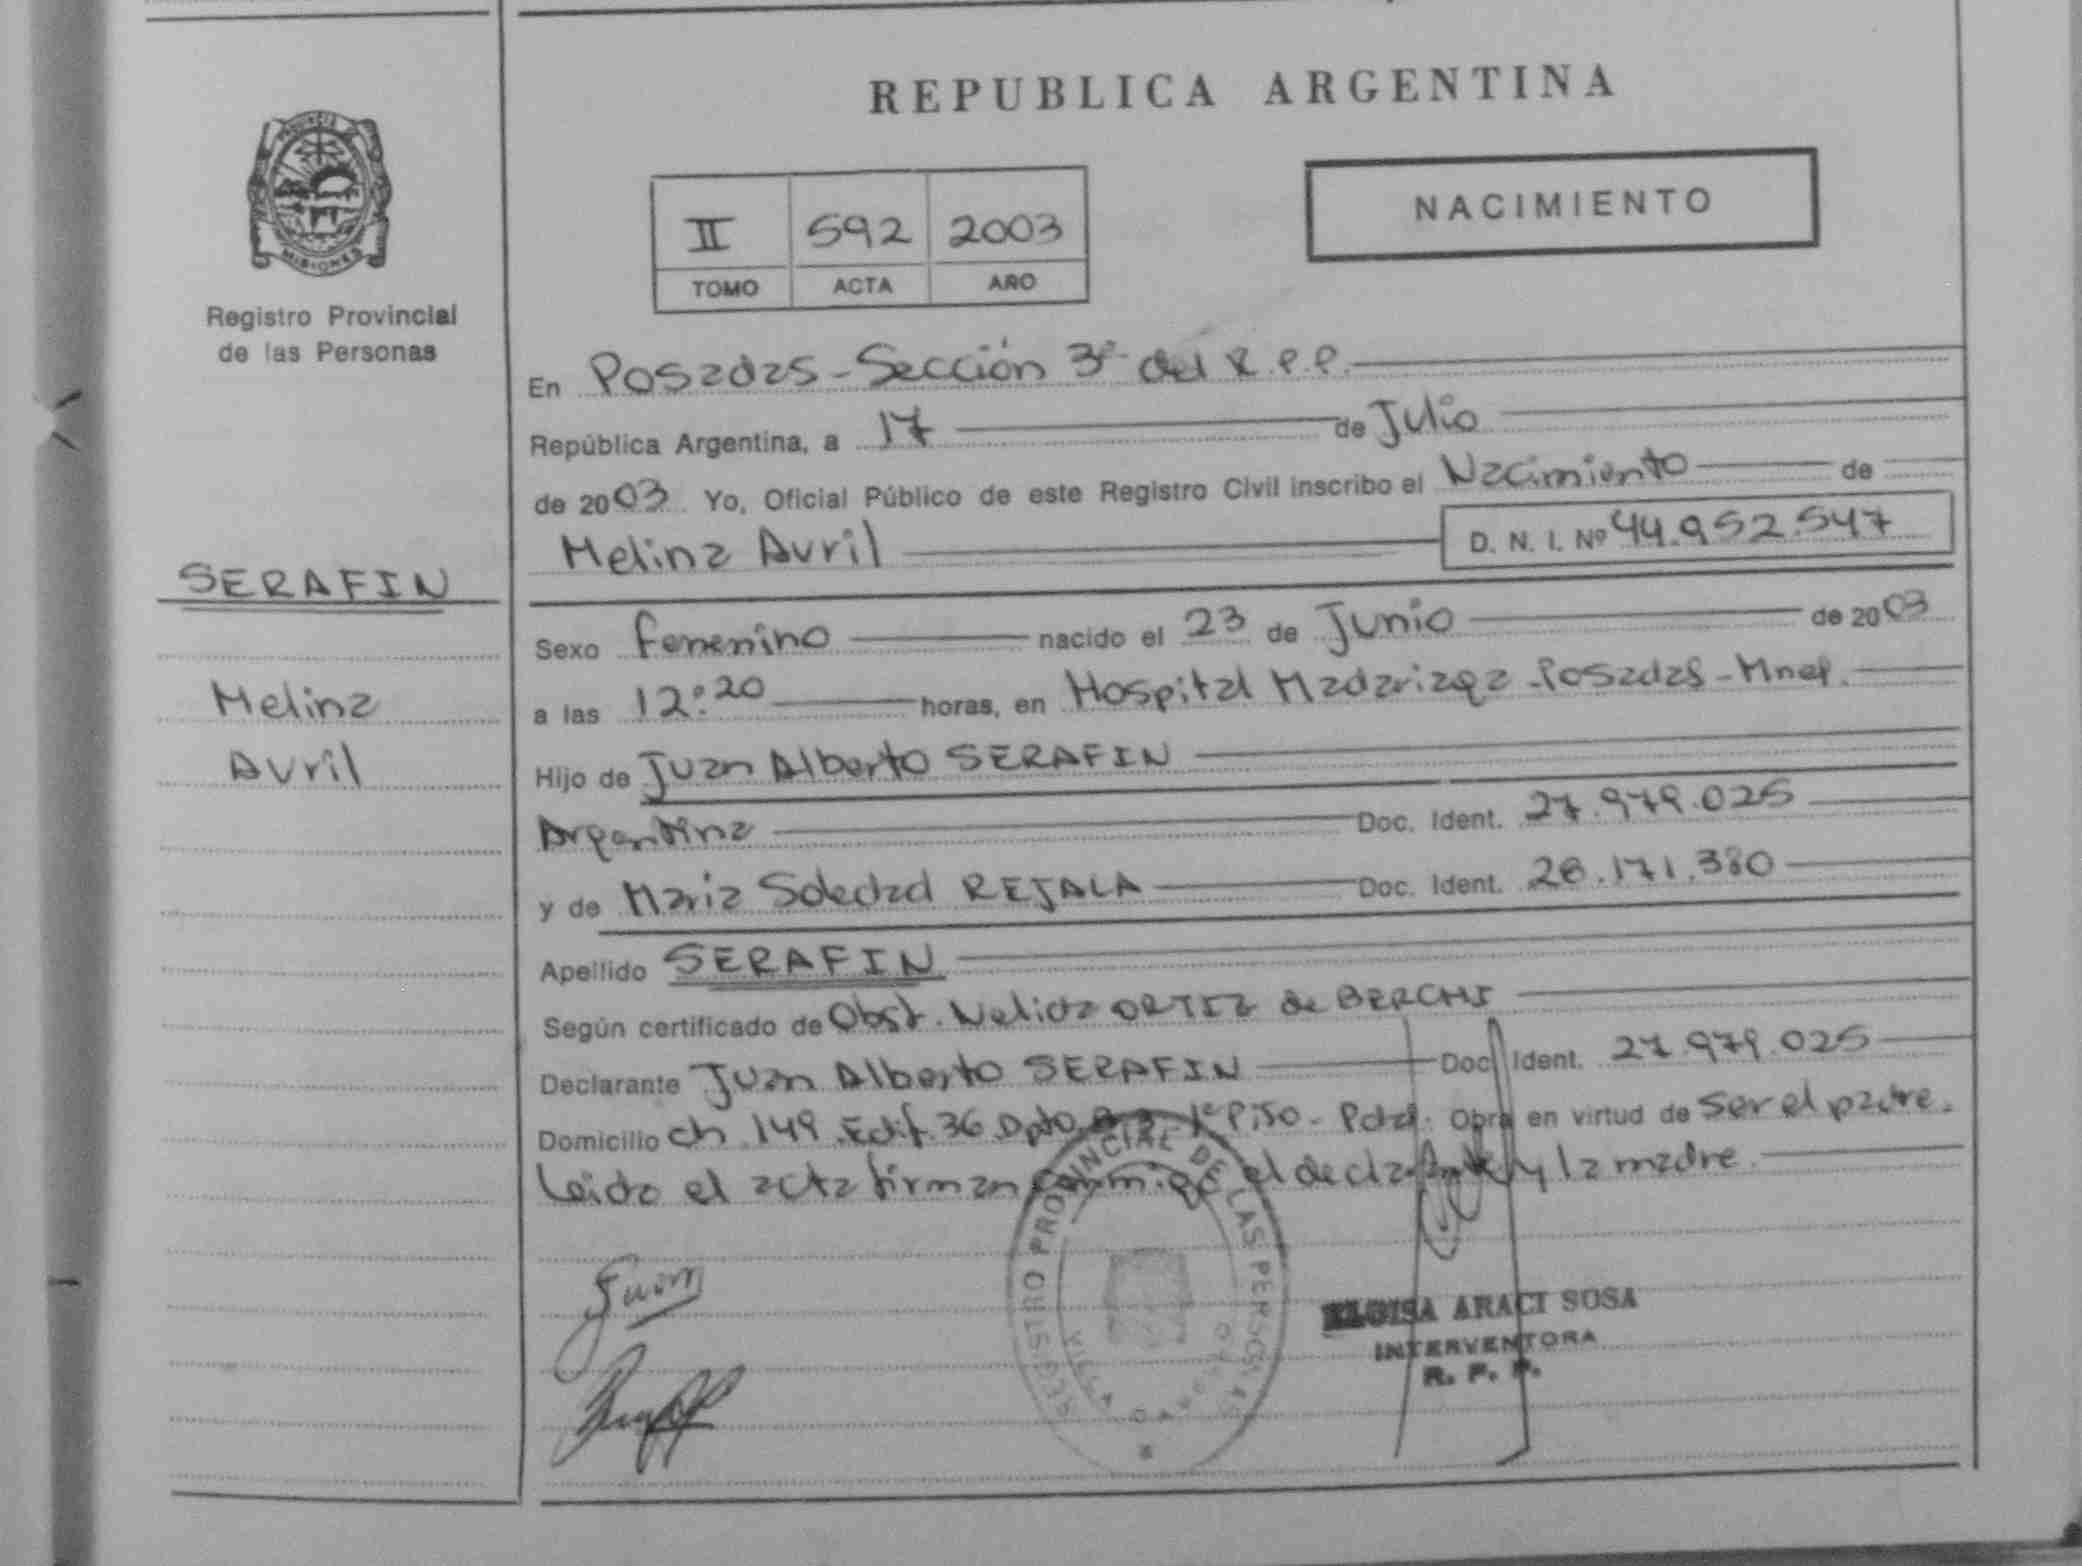 REPUBLICA ARGENTINA
PROVINCIA DE
MISIONES
Registro Provincial
de las Personas
II 592 2003
TOMO ACTA AÑO
NACIMIENTO
En Posadas - Sección 3ª del R.P.P.
República Argentina, a 17 de Julio
de 2003. Yo, Oficial Público de este Registro Civil inscribo el Nacimiento de
Melina Avril D. N. I. Nº 44.952.547
SERAFIN
Melina
Avril
Sexo femenino nacido el 23 de Junio de 2003
a las 12:20 horas, en Hospital Madariaga - Posadas - Mnes.
Hijo de Juan Alberto SERAFIN
Argentina Doc. Ident. 27.979.025
y de Maria Soledad REJALA Doc. Ident. 28.171.380
Apellido SERAFIN
Según certificado de Obst. Nelida ORTIZ de BERCHI
Declarante Juan Alberto SERAFIN Doc. Ident. 27.979.025
Domicilio ch 149 Edif. 36 Dpto 1º Piso - Pdas. Obra en virtud de ser el padre.
Leida el acta firman conmigo el declarante y la madre.
Juan
REGISTRO PROVINCIAL DE LAS PERSONAS
VILLA
ELOISA ARACI SOSA
INTERVENTORA
R. P. P.